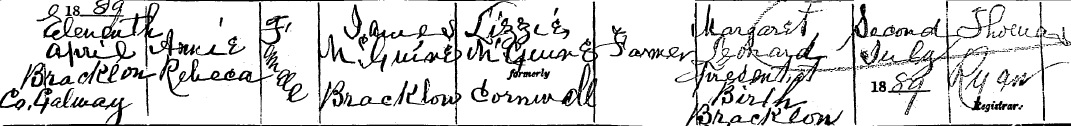 1889
Eleventh April Bracklon Co. Galway
Annie Rebeca
Female
James McGuire Bracklon
Lizzie McGuire formerly Cornwall
Farmer
Margaret Leonard Present at Birth Bracklon
Second July 1889
Thomas Ryan Registrar.